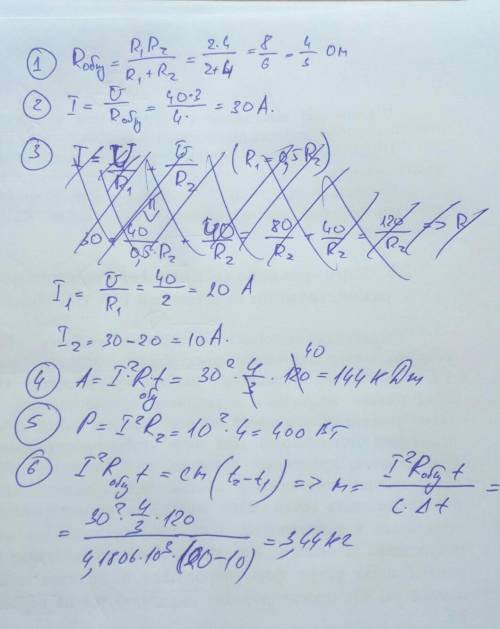 1 Rобщ = R₁R₂ / (R₁+R₂) = 2·4 / (2+4) = 8/6 = 4/3 Ом
2 I = U / Rобщ = 40·3 / 4 = 30 А.
3 I = U / R₁ + U / R₂ (R₁ = 0,5 R₂)
30 = 40 / 0,5·R₂ + 40 / R₂ = 80 / R₂ + 40 / R₂ = 120 / R₂ => R
I₁ = U / R₁ = 40 / 2 = 20 А
I₂ = 30-20 = 10 А.
4 A = I²Rобщ t = 30² · 4/3 · 120 40 = 144 кДж
5 P = I²R₂ = 10² · 4 = 400 Вт
6 I²Rобщ t = cm(t₂-t₁) => m = I²Rобщ t / c·Δt =
= 30² · 4/3 · 120 / 4,1806·10³·(20-10) = 3,44 кг